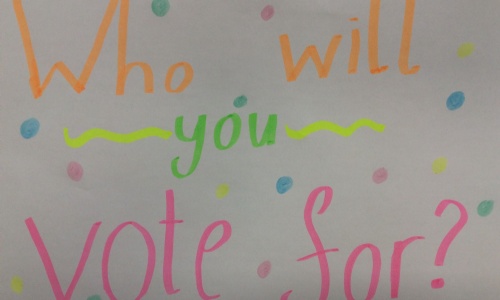 Who will
you
vote for?